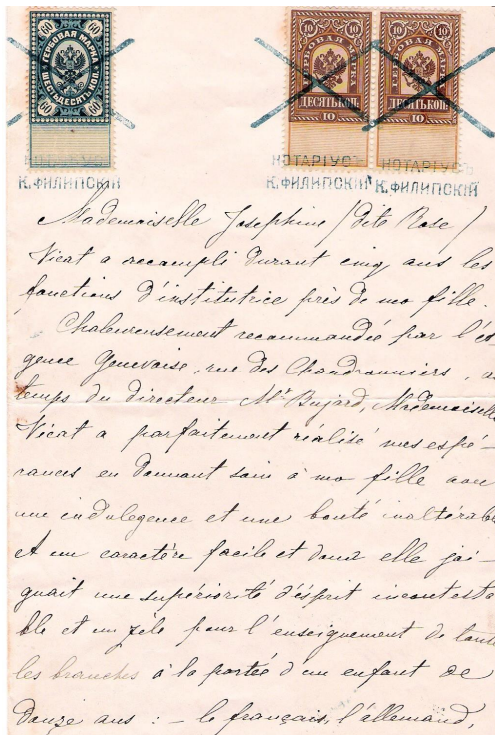 60 60
ГЕРБОВАЯ МАРКА
ШЕСТЬДЕСЯТЪ КОП.
60 60
10 10
ГЕРБОВАЯ МАРКА
ДЕСЯТЬ КОП.
10
10 10
ГЕРБОВАЯ МАРКА
ДЕСЯТЬ КОП.
10
НОТАРІУСЪ
К. ФИЛИПСКІЙ
НОТАРІУСЪ
К. ФИЛИПСКІЙ
НОТАРІУСЪ
К. ФИЛИПСКІЙ
Mademoiselle Josephine (dite Rose)
Vicat a recompli durant cinq ans les
fonctions d'institutrice près de ma fille.
Chaleureusement recommandée par l'a
gence Genevoise, rue des Chaudronniers, a
temps du directeur Mr. Bujard, Mademoiselle
Vicat a parfaitement réalisé mes espé-
rances en donnant soin à ma fille avec
une indulegence et une bonté inaltérab
A un caractère facile et doux elle joi-
gnait une supériorité d'ésprit incontesta
ble et un zèle pour l'enseignement de toute
les branches à la portée d'un enfant de
douze ans : — le français, l'allemand,